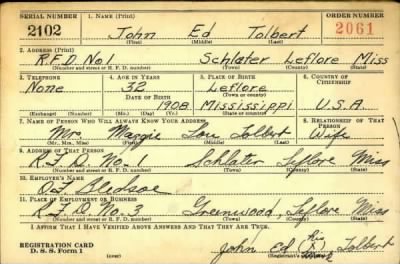 SERIAL NUMBER 1. NAME (Print) ORDER NUMBER
2102 John Ed Tolbert 2061
(First) (Middle) (Last)
2. ADDRESS (Print)
R.F.D. No. 1 Schlater Leflore Miss
(Number and street or R. F. D. number) (Town) (County) (State)
3. TELEPHONE 4. AGE IN YEARS 5. PLACE OF BIRTH 6. COUNTRY OF CITIZENSHIP
None 32 Leflore
DATE OF BIRTH (Town or county)
1908 Mississippi U.S.A.
(Exchange) (Number) (Mo.) (Day) (Yr.) (State or country)
7. NAME OF PERSON WHO WILL ALWAYS KNOW YOUR ADDRESS 8. RELATIONSHIP OF THAT PERSON
Mrs. Maggie Lou Tolbert Wife
(Mr., Mrs., Miss) (First) (Middle) (Last)
9. ADDRESS OF THAT PERSON
R.F.D. No. 1 Schlater Leflore Miss
(Number and street or R. F. D. number) (Town) (County) (State)
10. EMPLOYER'S NAME
O.F. Bledsoe
11. PLACE OF EMPLOYMENT OR BUSINESS
R.F.D. No. 3 Greenwood, Leflore Miss
(Number and street or R. F. D. number) (Town) (County) (State)
I AFFIRM THAT I HAVE VERIFIED ABOVE ANSWERS AND THAT THEY ARE TRUE.
REGISTRATION CARD
D. S. S. Form 1
John Ed His (X) Mark Tolbert
(Registrant's signature)